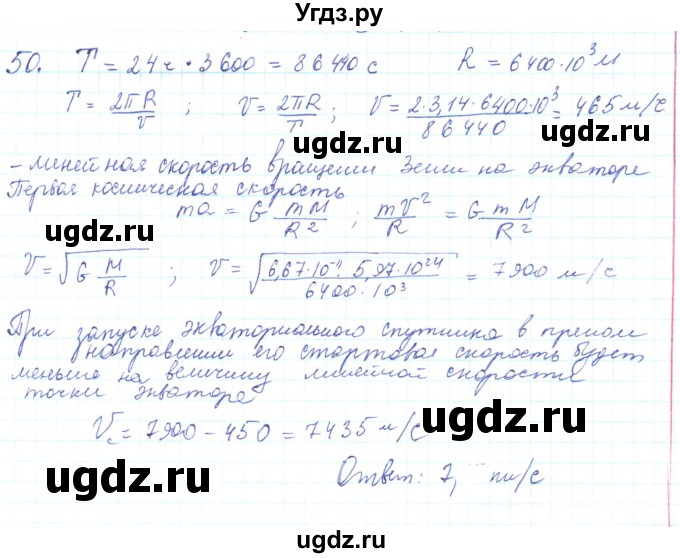 Угдз.ру
50. T = 24ч · 3600 = 86440 с R = 6400·10³ м
T = 2πR/V ; V = 2πR/T ; V = 2·3,14·6400·10³/86440 = 465 м/с
– линейная скорость вращении Земли на экваторе
Первая космическая скорость
ma = G mM/R² ; mV²/R = G mM/R²
V = √(G M/R) ; V = √(6,67·10⁻¹¹·5,97·10²⁴/6400·10³) = 7900 м/с
При запуске экваториального спутника в прямом
направлении его стартовая скорость будет
меньше на величину линейной скорости
точки экваторе
V = 7900 – 450 = 7435 м/с
Ответ: 7,
ugdz.ru
ugdz.ru
ugdz.ru
ugdz.ru
ugdz.ru
ugdz.ru
ugdz.ru
ugdz.ru
ugdz.ru
ugdz.ru